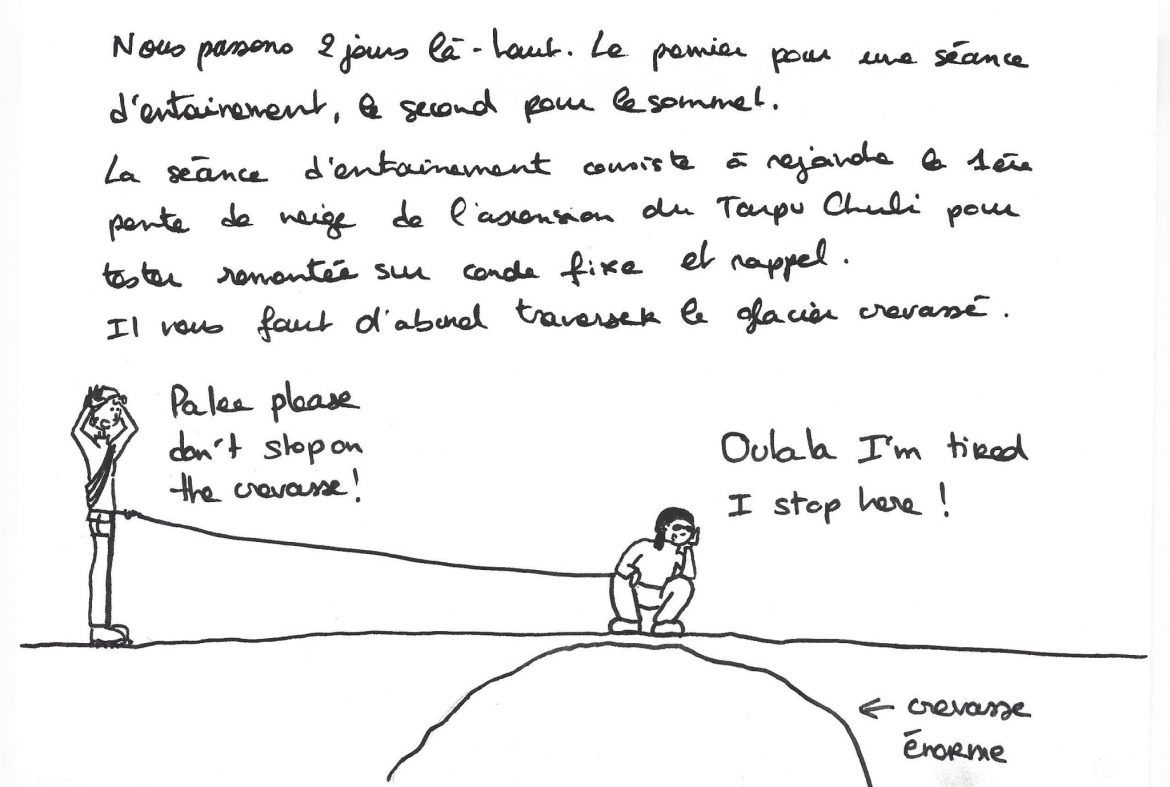 Nous passons 2 jours là-haut. Le premier pour une séance
d'entainement, le second pour le sommet.
La séance d'entainement consiste à rejoindre la 1ère
pente de neige de l'ascension du Tarpu Chuli pour
tester remontée sur corde fixe et rappel.
Il vous faut d'abord traverser le glacier crevassé.
Palee please
don't stop on
the crevasse!
Oulala I'm tired
I stop here !
← crevasse
énorme